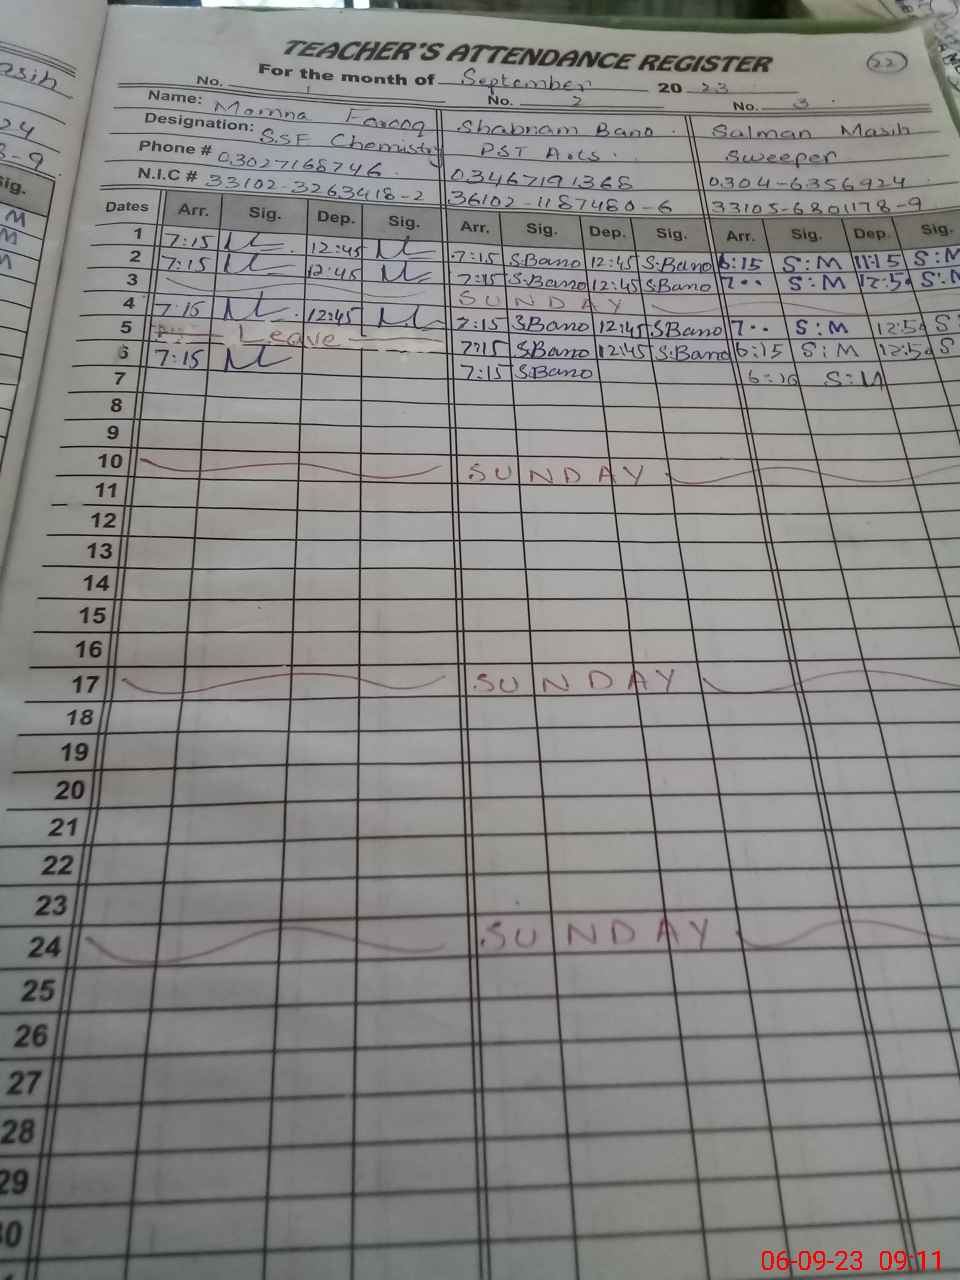 TEACHER'S ATTENDANCE REGISTER
22
For the month of September 20 23
No. 1 No. 2 No. 3
Name: Momna Farooq Shabnam Bano Salman Masih
Designation: S.S.E Chemistry PST Arts Sweeper
Phone # 03027168746 03467191368 0304-6356924
N.I.C # 33102-3263418-2 36102-1187480-6 33105-6801178-9
Dates Arr. Sig. Dep. Sig. Arr. Sig. Dep. Sig. Arr. Sig. Dep. Sig.
1 7:15 12:45 7:15 S.Bano 12:45 S.Bano 6:15 S:M 11:15 S:M
2 7:15 12:45 7:15 S.Bano 12:45 S.Bano 7:00 S:M 12:50 S:M
3 SUNDAY
4 7:15 12:45 7:15 S.Bano 12:45 S.Bano 7:00 S:M 12:50 S
5 Leave 7:15 S.Bano 12:45 S.Bano 6:15 S:M 12:50 S
6 7:15 7:15 S.Bano S:M
7
8
9
10 SUNDAY
11
12
13
14
15
16
17 SUNDAY
18
19
20
21
22
23
24 SUNDAY
25
26
27
28
29
30
asih
24
8-9
Sig.
M
M
M
06-09-23 09:11